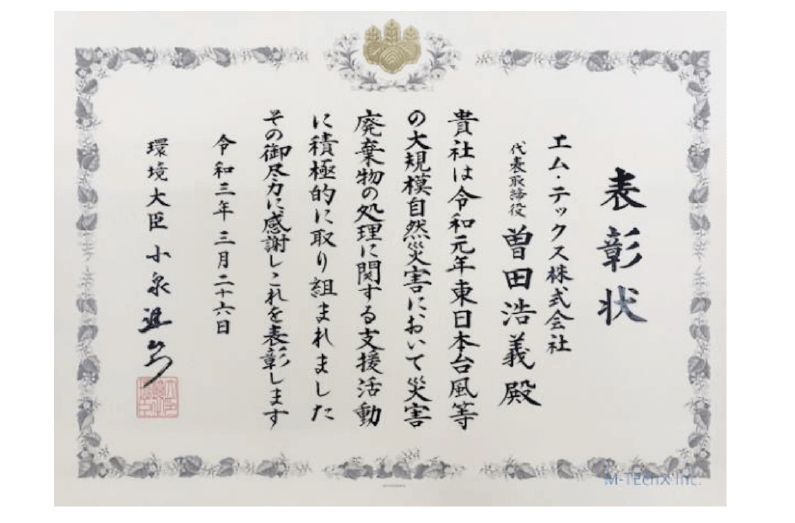 表彰状
エム・テックス株式会社
代表取締役 曽田浩義殿
貴社は令和元年東日本台風等
の大規模自然災害において災害
廃棄物の処理に関する支援活動
に積極的に取り組まれました
その御尽力に感謝しこれを表彰します
令和三年三月二十六日
環境大臣 小泉進次郎
M-TEchX Inc.